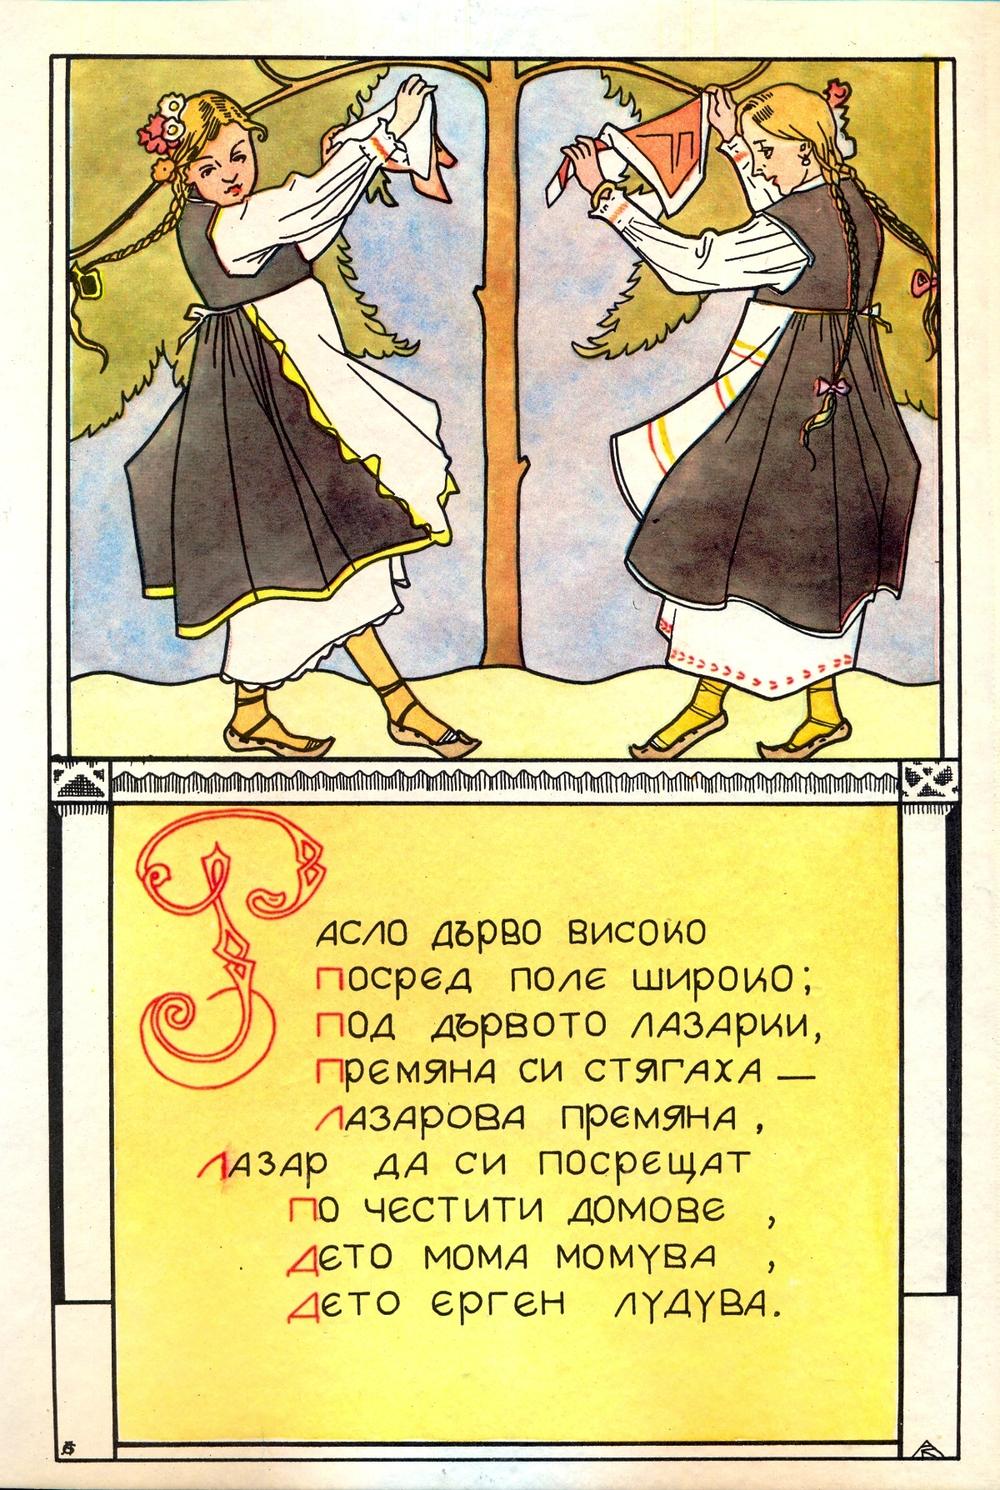 Расло дърво високо
посред поле широко;
под дървото лазарки,
премяна си стягаха —
лазарова премяна,
лазар да си посрещат
по честити домове,
дето мома момува,
дето ерген лудува.